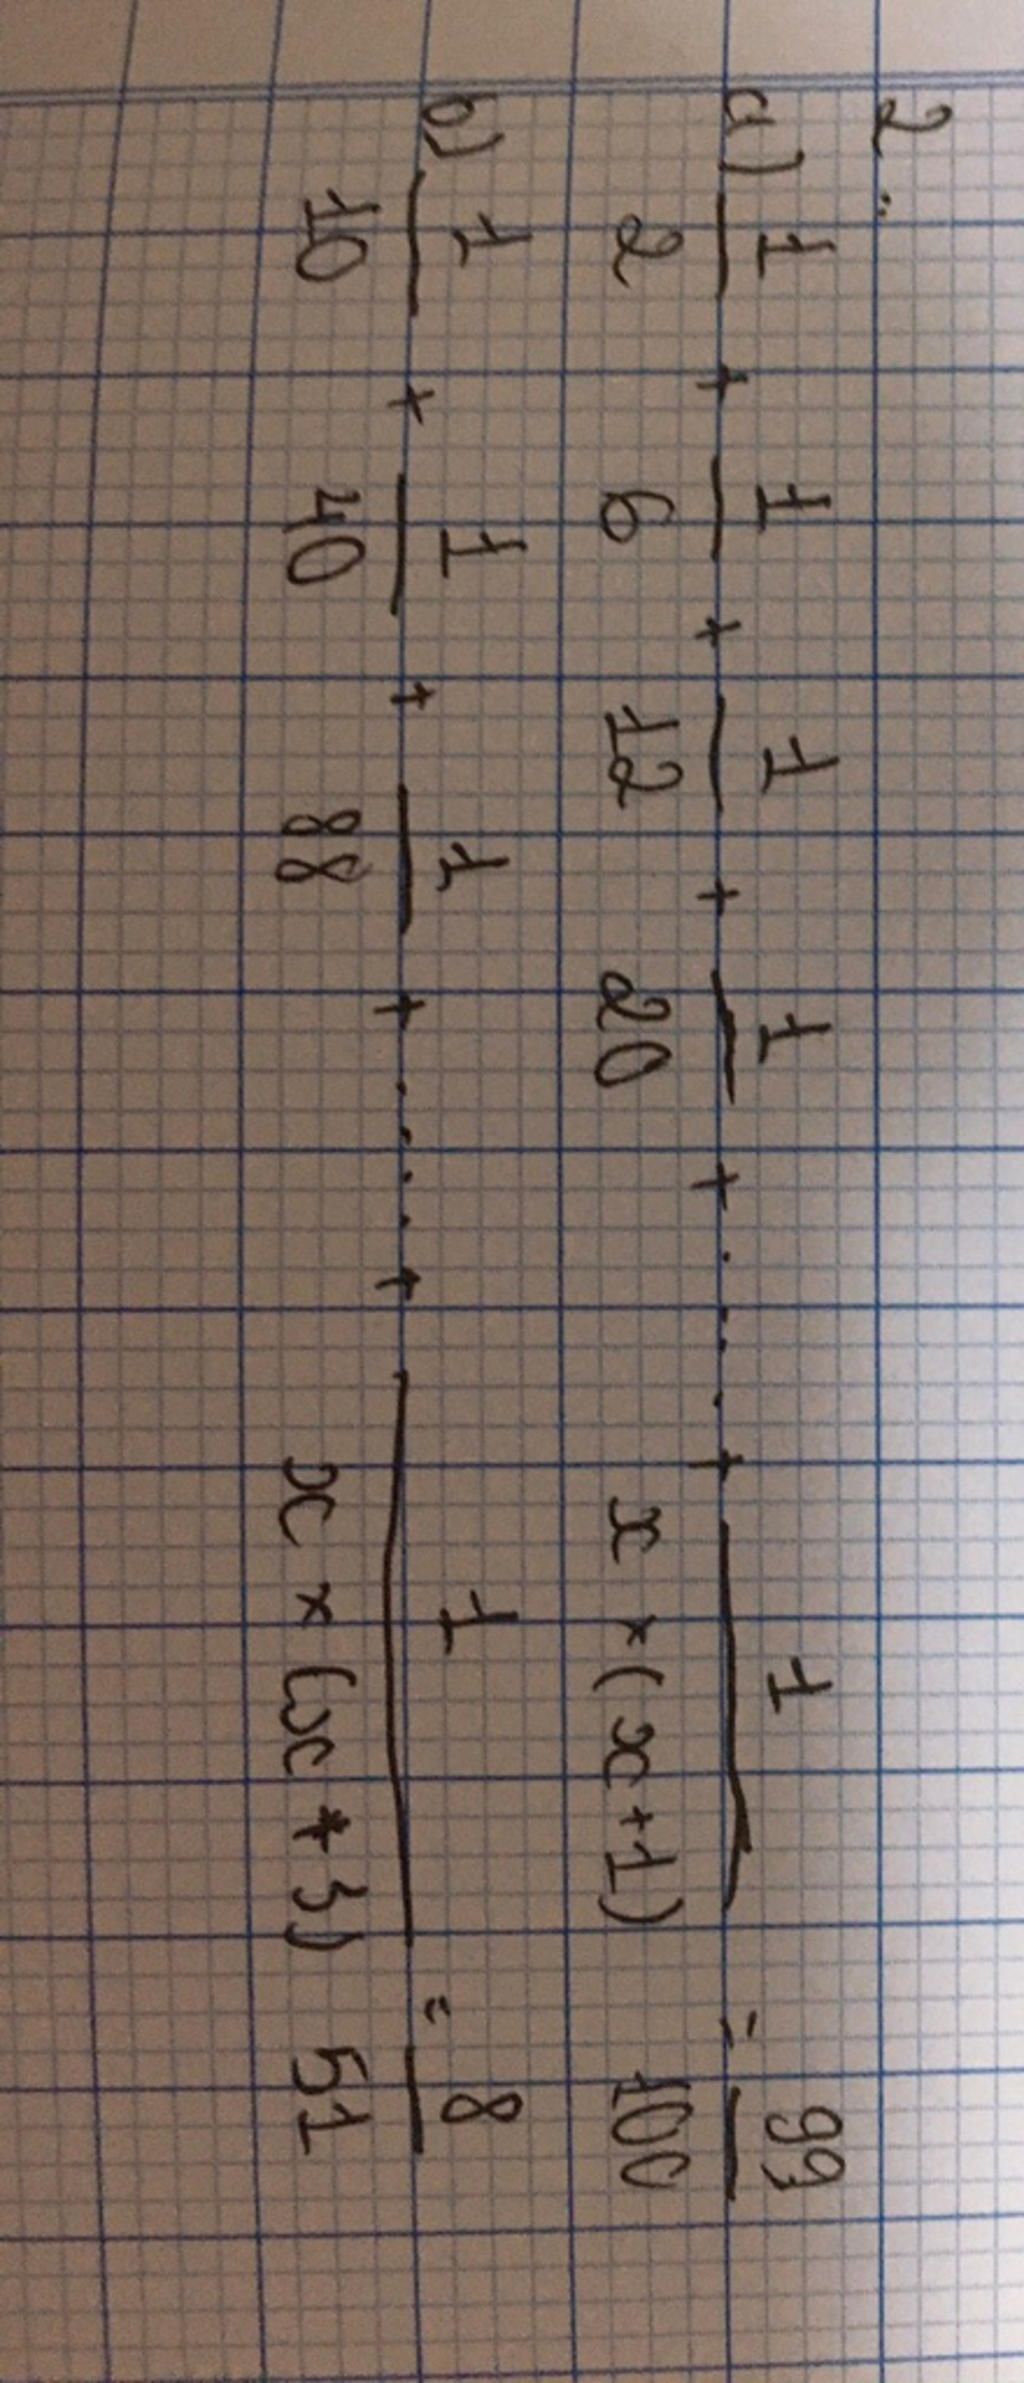 2.
a) 1/2 + 1/6 + 1/12 + 1/20 + ..... + 1/x × (x+1) = 99/100
b) 1/10 + 1/40 + 1/88 + ..... + 1/x × (x + 3) = 8/51